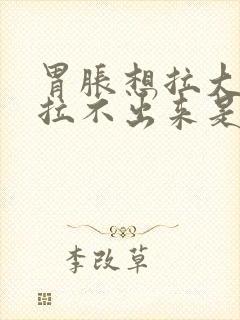 胃胀想拉大
拉不出来是
李改草